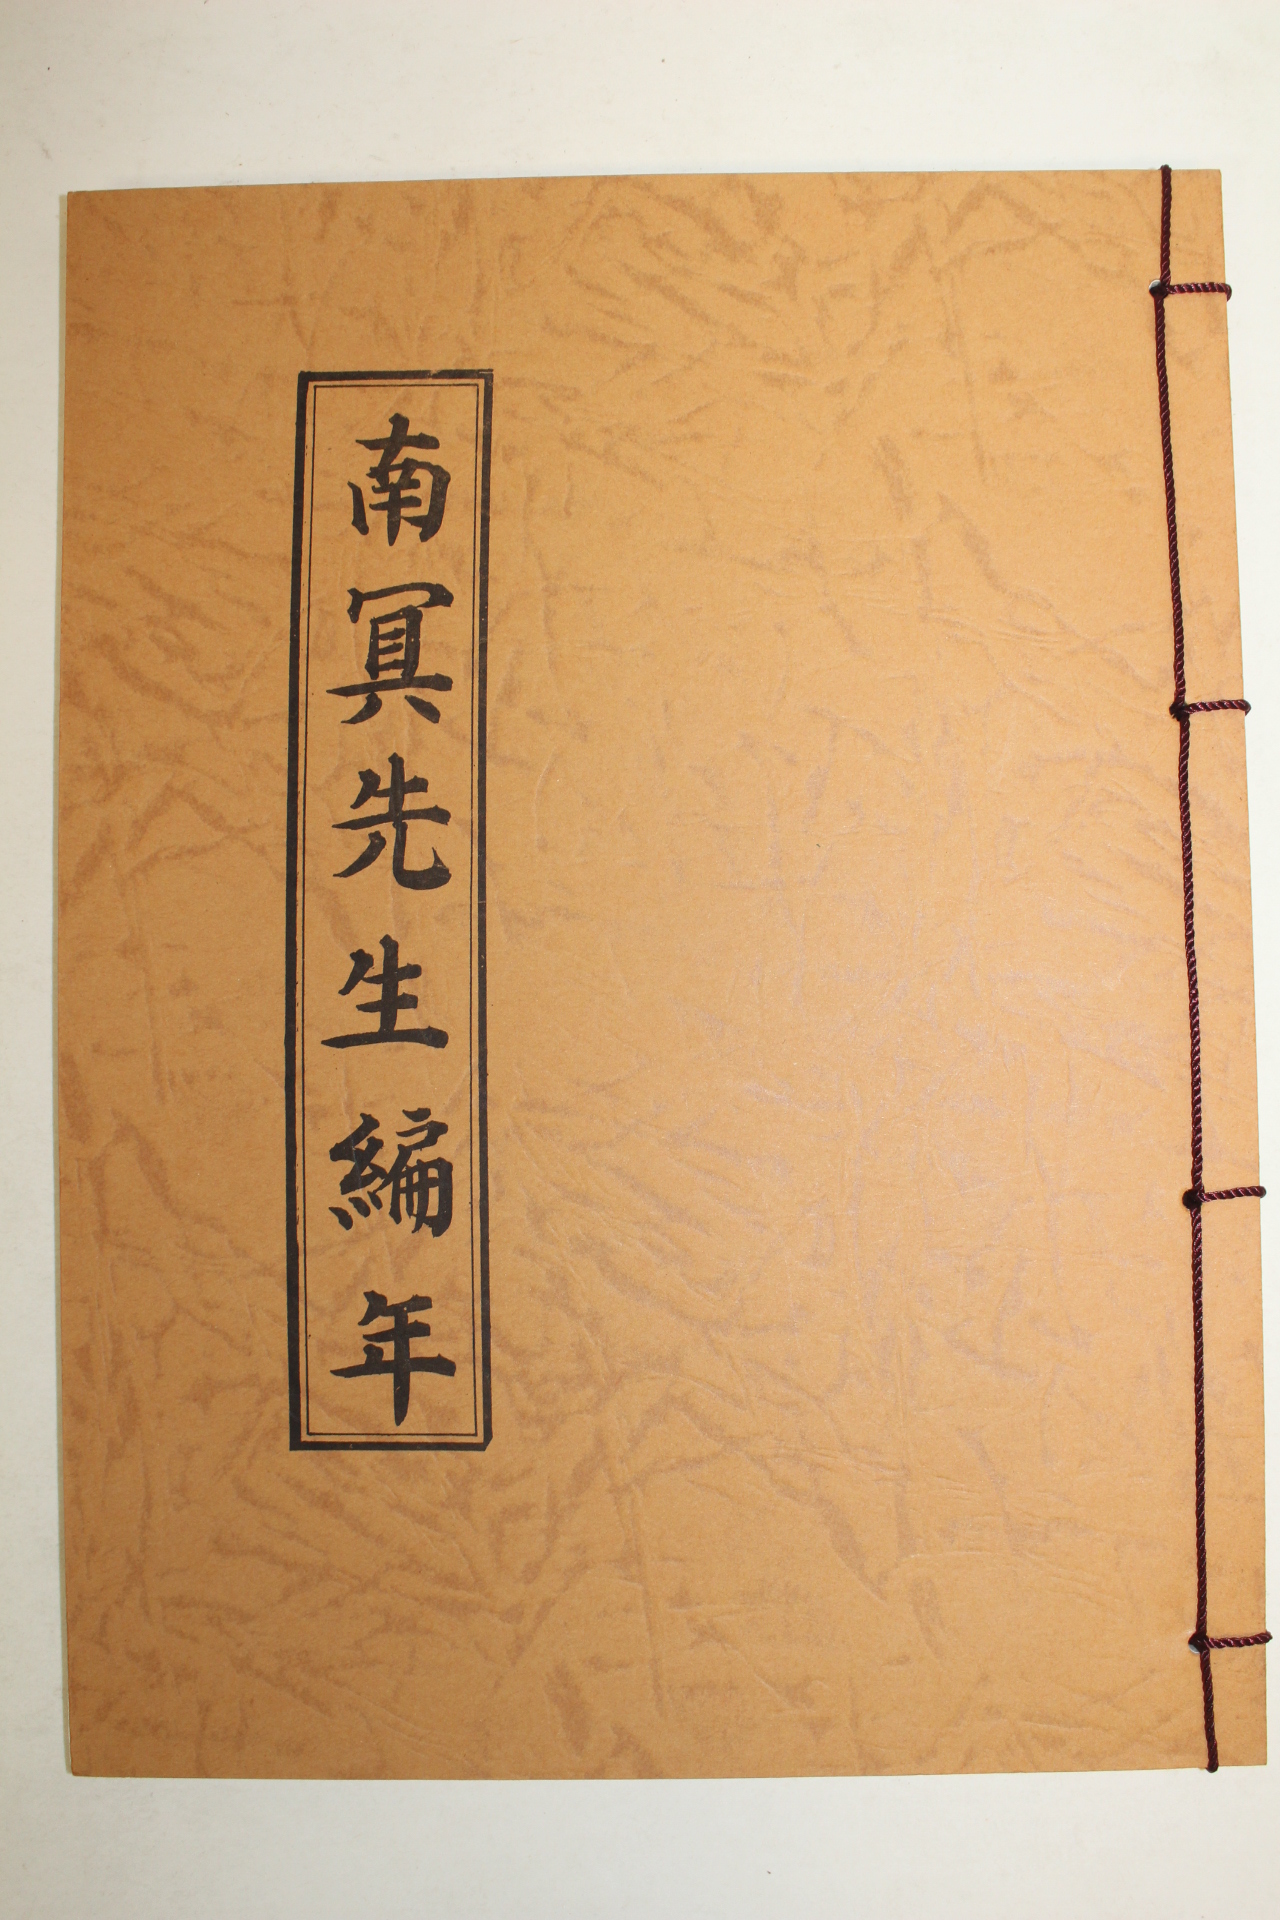 南冥先生編年